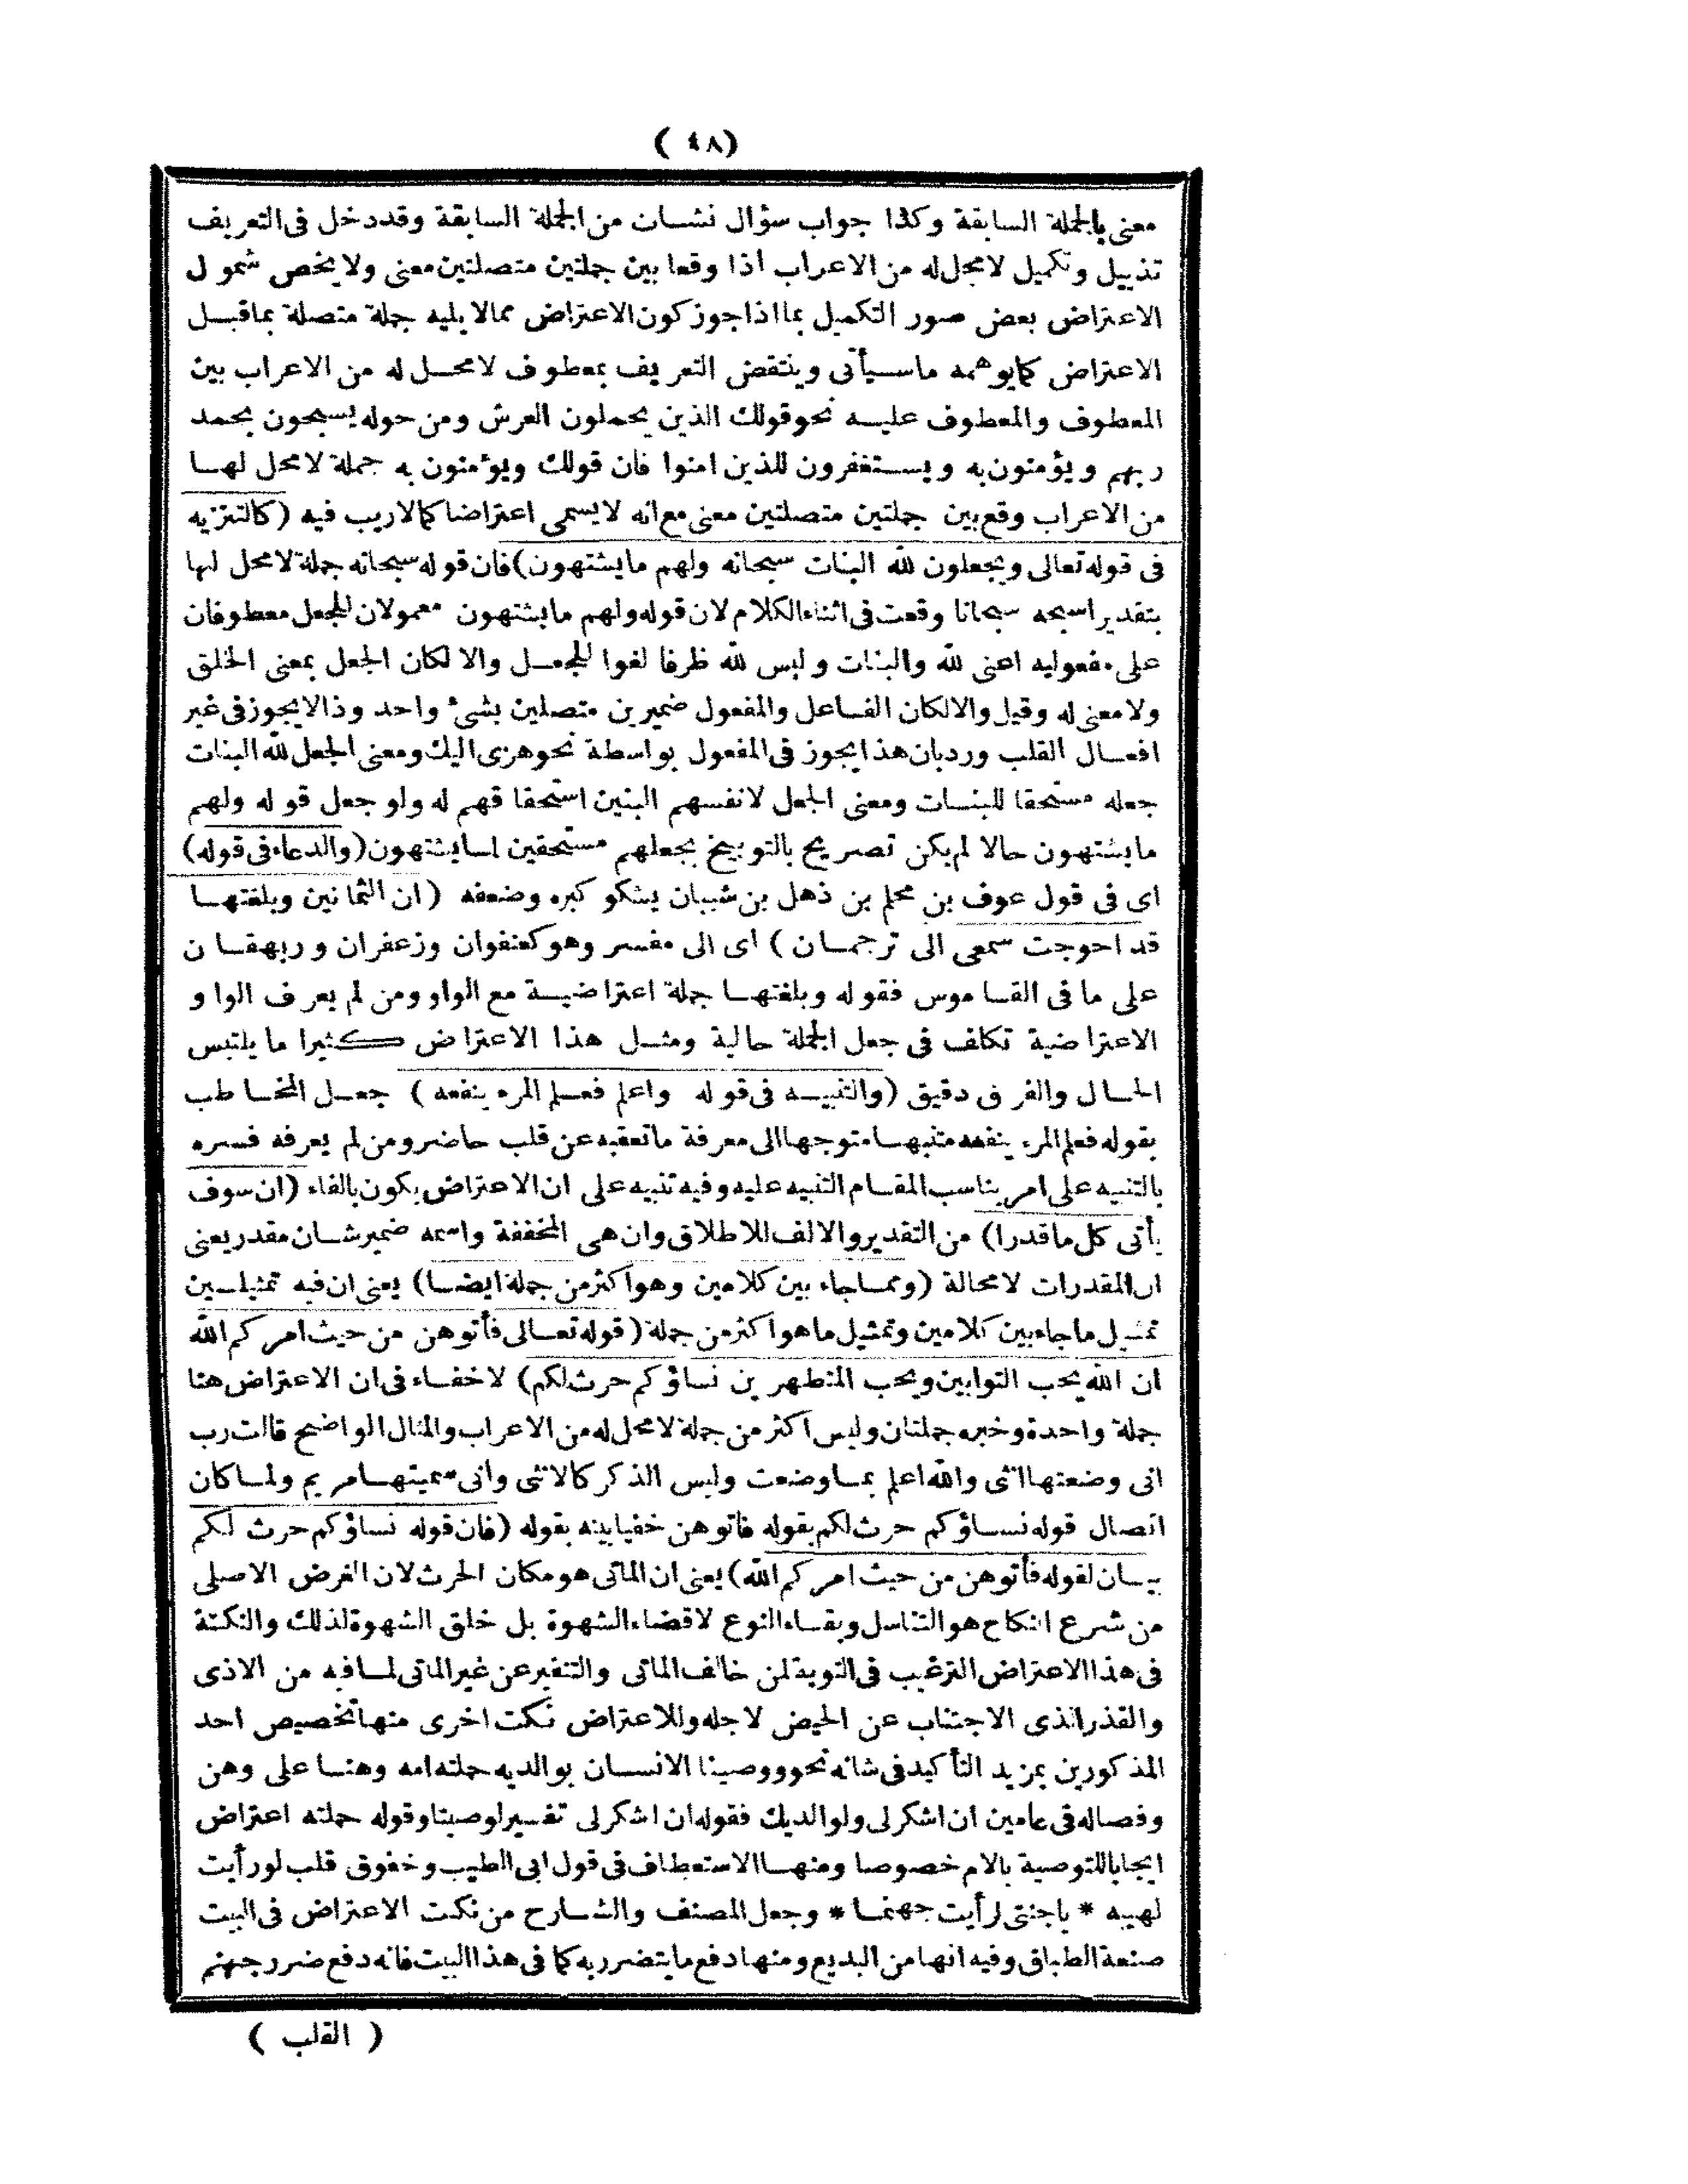 ( ٤٨ )
معنى بالجملة السابقة وكذا جواب سؤال نشان من الجملة السابقة وقددخل فى التعريف
تذييل وتكميل لامحل له من الاعراب اذا وقعا بين جملتين متصلتين معنى ولا يخص شمول
الاعتراض بعض صور التكميل بما اذا جوز كون الاعتراض ممالا يليه جملة متصلة بماقبل
الاعتراض كمايوهمه ماسيأتى وينتقض التعريف بمعطوف لامحل له من الاعراب بين
المعطوف والمعطوف عليه نحو قولك الذين يحملون العرش ومن حوله يسبحون بحمد
ربهم ويؤمنون به ويستغفرون للذين امنوا فان قولك ويؤمنون به جملة لامحل لها
من الاعراب وقع بين جملتين متصلتين معنى مع انه لايسمى اعتراضا كمالاريب فيه (كالتنزيه
فى قوله تعالى ويجعلون لله البنات سبحانه ولهم مايشتهون) فان قوله سبحانه جملة لامحل لها
بتقدير اسبحه سبحانا وقعت فى اثناء الكلام لان قوله ولهم مايشتهون معمولان للجعل معطوفان
على مفعوليه اعنى لله والبنات وليس لله ظرفا لغوا للجعل والا لكان الجعل بمعنى الخلق
ولا معنى له وقيل والالكان الفاعل والمفعول ضميرين متصلين بشئ واحد وذالايجوز فى غير
افعال القلب ورد بان هذا يجوز فى المفعول بواسطة نحو هزى اليك ومعنى الجعل لله البنات
جعله مستحقا للبنات ومعنى الجعل لانفسهم البنين استحقا قهم له ولو جعل قوله ولهم
مايشتهون حالا لم يكن تصريح بالتوبيخ بجعلهم مستحقين لمايشتهون (والدعاء فى قوله)
اى فى قول عوف بن محلم بن ذهل بن شيبان يشكو كبره وضعفه (ان الثمانين وبلغتها
قد احوجت سمعى الى ترجمان ) اى الى مفسر وهو كعنفوان وزعفران وريهقان
على ما فى القاموس فقوله وبلغتها جملة اعتراضية مع الواو ومن لم يعرف الواو
الاعتراضية تكلف فى جعل الجملة حالية ومثل هذا الاعتراض كثيرا ما يلتبس
الحال والفرق دقيق (والتنبيه فى قوله واعلم فعلم المرء ينفعه ) جعل المخاطب
بقوله فعلم المرء ينفعه متنبها متوجها الى معرفة ماتعقبه عن قلب حاضر ومن لم يعرفه فسره
بالتنبيه على امر يناسب المقام التنبيه عليه وفيه تنبيه على ان الاعتراض يكون بالفاء (ان سوف
يأتى كل ماقدرا) من التقدير والالف للاطلاق وان هى المخففة واسمه ضمير شان مقدر يعنى
ان المقدرات لامحالة (ومماجاء بين كلامين وهو اكثر من جملة ايضا) يعنى ان فيه تمثيلين
تمثيل ماجاء بين كلامين وتمثيل ماهو اكثر من جملة (قوله تعالى فأتوهن من حيث امركم الله
ان الله يحب التوابين ويحب المتطهرين نساؤكم حرث لكم) لاخفاء فى ان الاعتراض هنا
جملة واحدة وخبره جملتان وليس اكثر من جملة لامحل له من الاعراب والمثال الواضح قالت رب
انى وضعتها انثى والله اعلم بما وضعت وليس الذكر كالانثى وانى سميتها مريم ولما كان
اتصال قوله نساؤكم حرث لكم بقوله فاتوهن خفيا بينه بقوله (فان قوله نساؤكم حرث لكم
بيان لقوله فأتوهن من حيث امركم الله) يعنى ان المأتى هو مكان الحرث لان الغرض الاصلى
من شرع النكاح هو التناسل وبقاء النوع لاقضاء الشهوة بل خلق الشهوة لذلك والنكتة
فى هذا الاعتراض الترغيب فى التوبة لمن خالف المأتى والتنفير عن غير المأتى لما فيه من الاذى
والقذر الذى الاجتناب عن الحيض لاجله وللاعتراض نكت اخرى منها تخصيص احد
المذكورين بمزيد التأكيد فى شانه نحو ووصينا الانسان بوالديه حملته امه وهنا على وهن
وفصاله فى عامين ان اشكر لى ولوالديك فقوله ان اشكر لى تفسير لوصينا وقوله حملته اعتراض
ايجابا للتوصية بالام خصوصا ومنها الاستعطاف فى قول ابى الطيب وخفوق قلب لو رأيت
لهيبه * ياجنتى لرأيت جهنما * وجعل المصنف والشارح من نكت الاعتراض فى البيت
صنعة الطباق وفيه انها من البديع ومنها دفع مايتضرر به كما فى هذا البيت فانه دفع ضرر جهنم
( القلب )